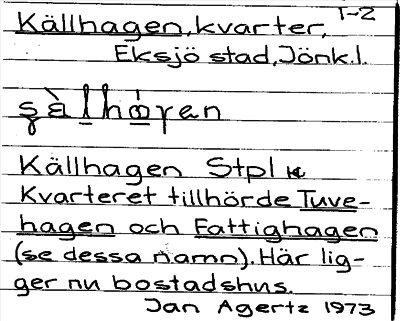 Källhagen, kvarter, 1-2
Eksjö stad, Jönk.l.
Källhagen Stpl k
Kvarteret tillhörde Tuve-
hagen och Fattighagen
(se dessa namn). Här lig-
ger nu bostadshus.
Jan Agertz 1973